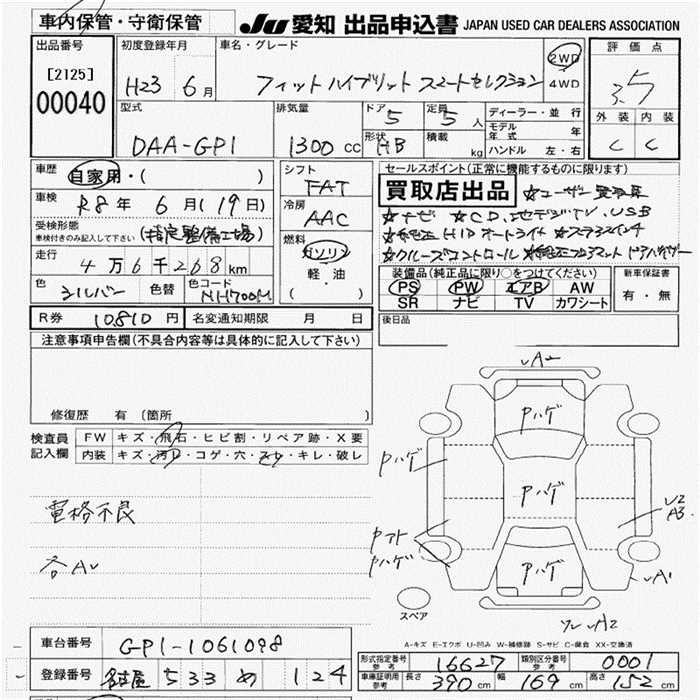 車内保管・守衛保管
JU 愛知 出品申込書 JAPAN USED CAR DEALERS ASSOCIATION
出品番号
[2125]
00040
初度登録年月
H23 6月
車名・グレード
フィットハイブリット スマートセレクション
2WD
4WD
評価点
3.5
外装 内装
C C
型式
DAA-GP1
排気量
1300 cc
ドア 5
形状 HB
定員 5 人
積載 kg
ディーラー・並行
モデル年式 年
ハンドル 左・右
車歴
自家用・( )
車検
R8年 6月(19日)
受検形態
車検付きのみ記入して下さい
(指定整備工場)
走行
4万6千268km
色 シルバー 色替 カラーNo. NH700M
シフト
FAT
冷房
AAC
燃料
ガソリン
軽・油
( )
セールスポイント(正常に機能するものに限ります)
買取店出品 ☆ユーザー買取車
☆ナビ ☆CD,地デジTV,USB
☆純正HIDオートライト ☆ステアスイッチ
☆クルーズコントロール ☆純正フロアマット ドアバイザー
装備品(純正品に限り○をつけてください)
PS PW エアB AW
SR ナビ TV カワシート
新車保証書
有・無
R券 10810円 名変通知期限 月 日
後日品
注意事項申告欄(不具合内容等は具体的に記入して下さい)
修復歴 有(箇所 )
検査員記入欄
FW キズ・飛石・ヒビ割・リペア跡・X要
内装 キズ・汚レ・コゲ・穴・スレ・キレ・破レ
電格不良
各AU
UA2
Pハゲ
Pハゲ
Pハゲ
U2
A3
Pハゲ
Pハゲ
UA1
スペア
UA2
A-キズ E-エクボ U-凹み W-補修跡 S-サビ C-腐食 XX-交換済
車台番号 GP1-1061098
登録番号 名古屋 533 め 124
形式指定番号 参考 16627
類別区分番号 参考 0001
車庫証明用 参考 長さ 390 cm 幅 169 cm 高さ 152 cm